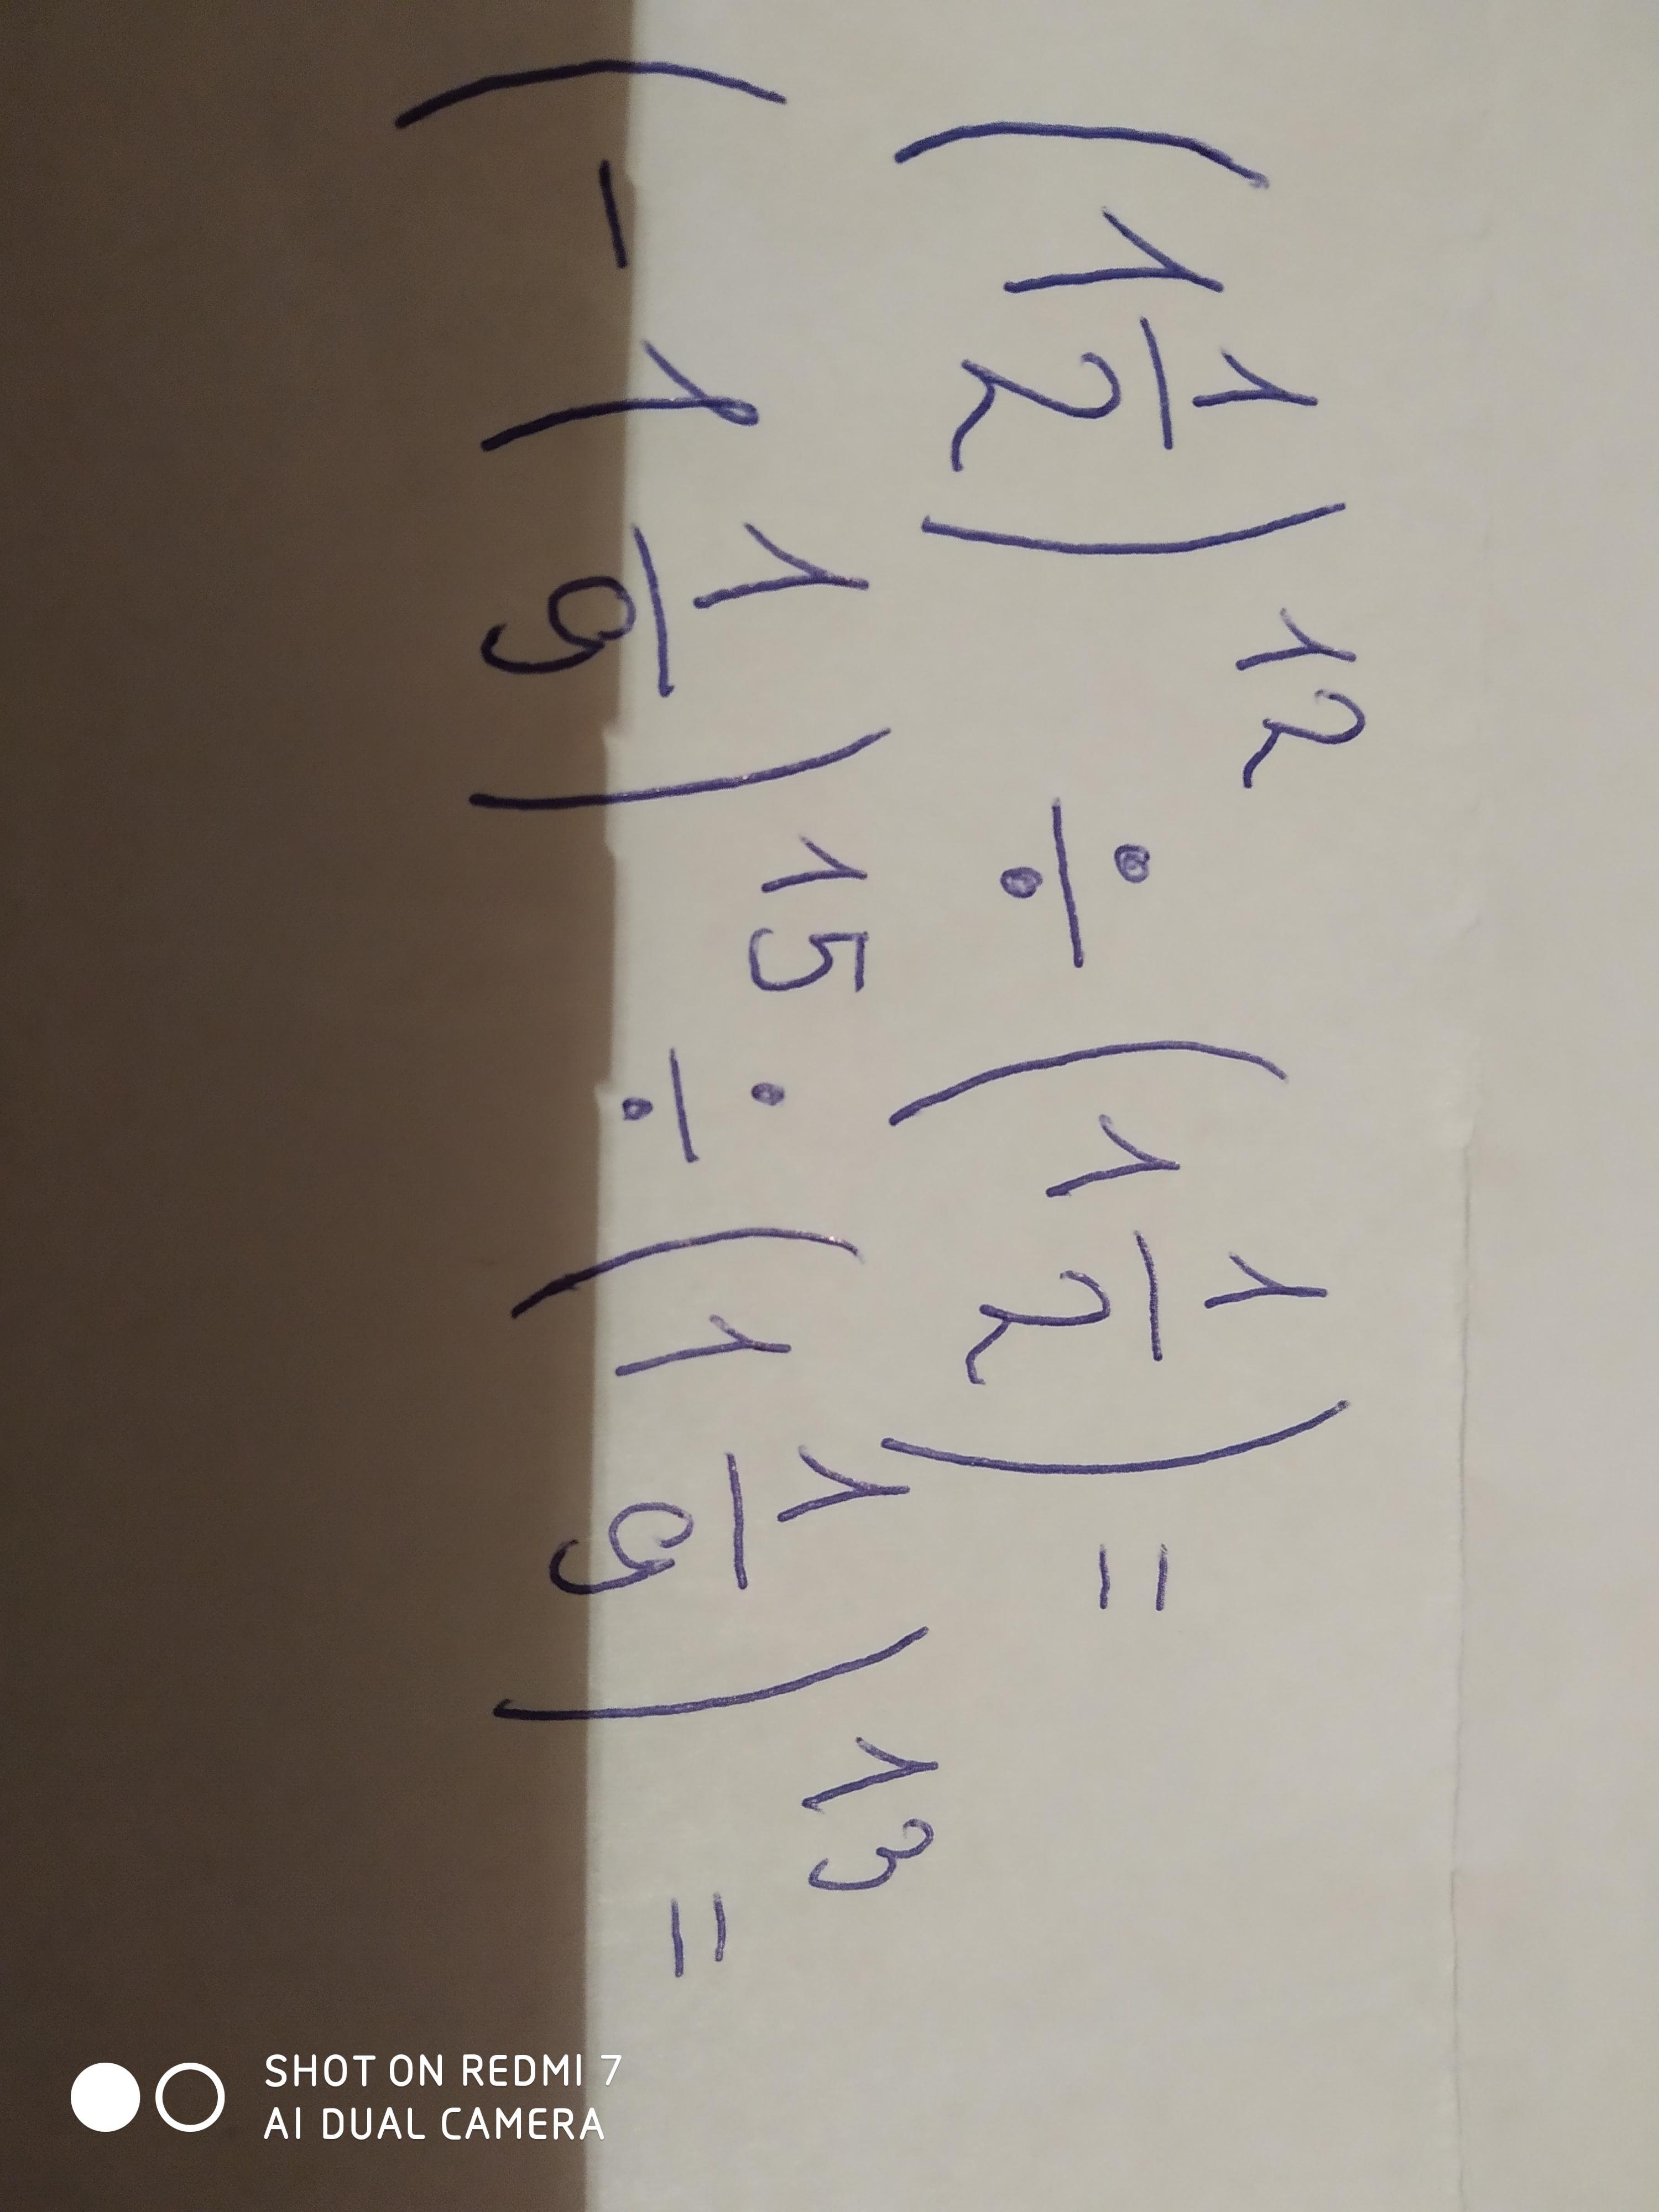 (1 1/2)^12 ÷ (1 1/2) =
(-1 1/9)^15 ÷ (1 1/9)^13 =
SHOT ON REDMI 7
AI DUAL CAMERA